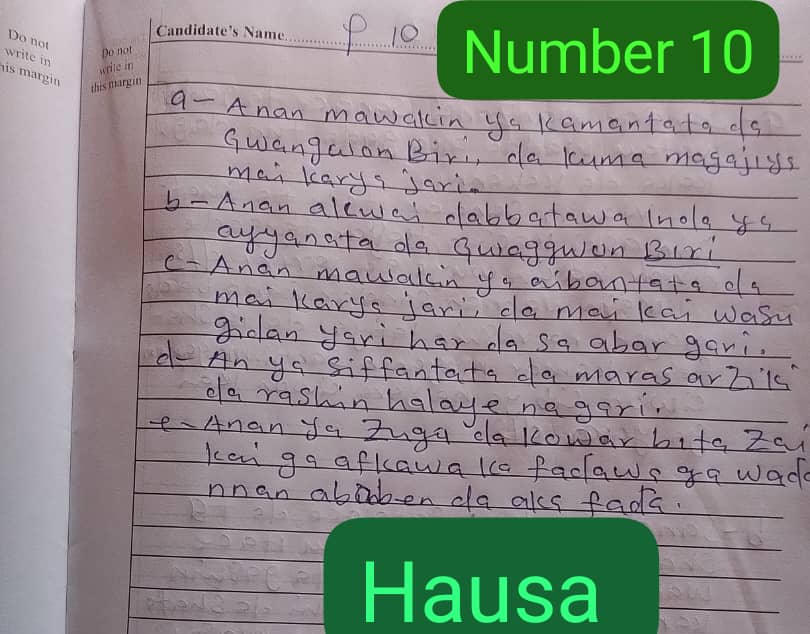 Do not
write in
his margin
Do not
write in
this margin
Candidate's Name
P 10
Number 10
a- Anan mawakin ya kamantata da
Gwangwson Biri, da kuma magajiys
mai karya jari.
b- Anan alkwai dabbatawa Inda ya
ayyanata da Gwaggwon Biri
c- Anan mawakin ya aibantata da
mai karya jari, da mai kai wasu
gidan yari har da sa abar gari.
d- An ya siffantata da maras arziki
da rashin halaye na gari.
e- Anan ya zuga da kowar bita zai
kai ga afkawa ka fadawa ga wada
nnan abubben da aka fada.
Hausa